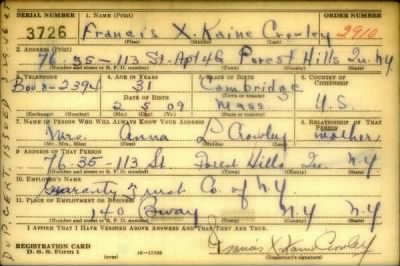 SERIAL NUMBER 1. NAME (Print) ORDER NUMBER
3726 Francis X. Kaine Crowley 2910
(First) (Middle) (Last)
2. ADDRESS (Print)
76 35-113 St. Apt 4G Forest Hills Qu. N.Y
(Number and street or R. F. D. number) (Town) (County) (State)
3. TELEPHONE 4. AGE IN YEARS 5. PLACE OF BIRTH 6. COUNTRY OF CITIZENSHIP
Bou 8-2394 31 Cambridge
DATE OF BIRTH (Town or county)
2 5 09 Mass. U.S.
(Exchange) (Number) (Mo.) (Day) (Yr.) (State or country)
7. NAME OF PERSON WHO WILL ALWAYS KNOW YOUR ADDRESS 8. RELATIONSHIP OF THAT PERSON
Mrs. Anna L Crowley mother
(Mr., Mrs., Miss) (First) (Middle) (Last)
9. ADDRESS OF THAT PERSON
76-35-113 St Forest Hills Qu N.Y
(Number and street or R. F. D. number) (Town) (County) (State)
10. EMPLOYER'S NAME
Guaranty Trust Co. of N.Y.
11. PLACE OF EMPLOYMENT OR BUSINESS
140 Bway N.Y N.Y
(Number and street or R. F. D. number) (Town) (County) (State)
I AFFIRM THAT I HAVE VERIFIED ABOVE ANSWERS AND THAT THEY ARE TRUE.
REGISTRATION CARD
D. S. S. Form 1 (over) 16-17105 Francis X Kaine Crowley
(Registrant's signature)
DUP. CERT. ISSUED